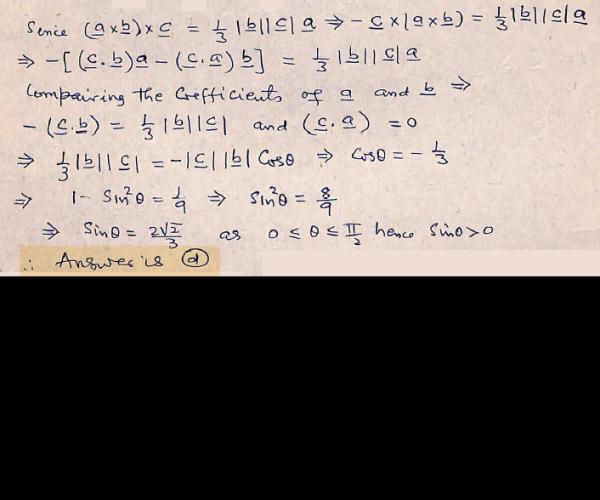 Sence (a×b)×c = 1/3 |b||c| a ⇒ - c×(a×b) = 1/3 |b||c| a
⇒ -[(c.b)a - (c.a) b] = 1/3 |b||c| a
Compairing the Coefficients of a and b ⇒
- (c.b) = 1/3 |b||c| and (c.a) = 0
⇒ 1/3 |b||c| = -|c||b| Cosθ ⇒ Cosθ = - 1/3
⇒ 1 - Sin²θ = 1/9 ⇒ Sin²θ = 8/9
⇒ Sinθ = 2√2/3 as 0 ≤ θ ≤ π/2 hence Sinθ > 0
∴ Answer is ⓓ